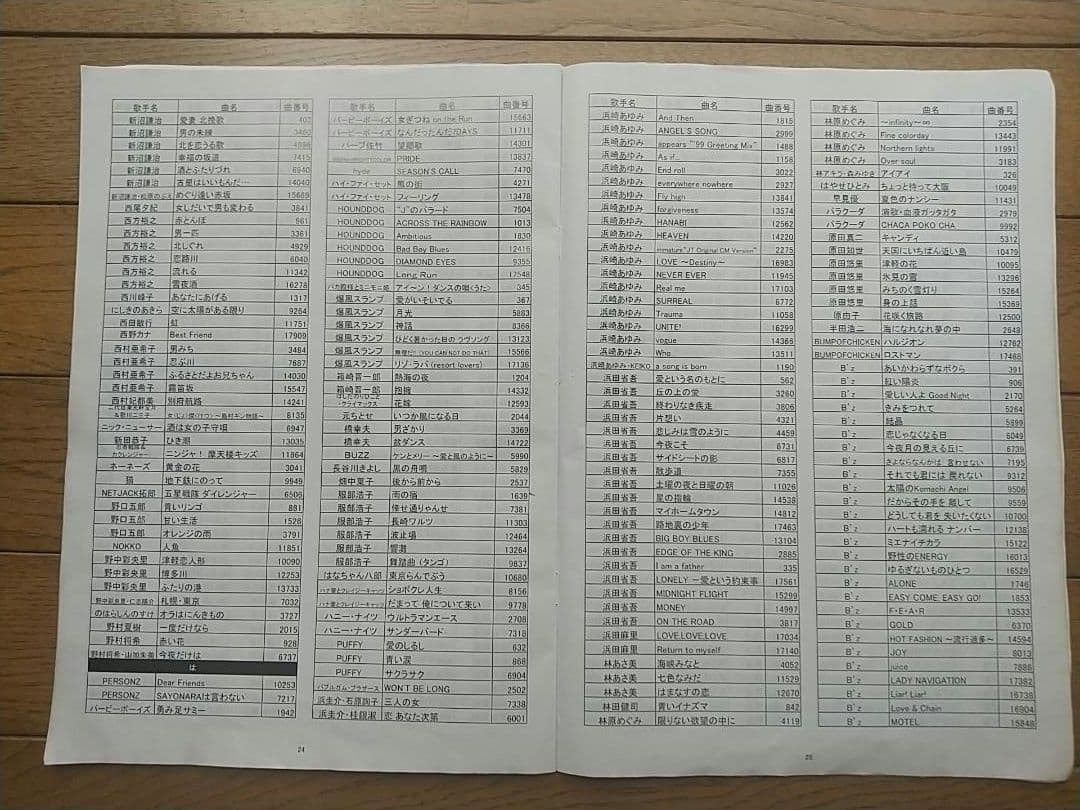 歌手名 曲名 曲番号
新沼謙治 愛妻 北挽歌 402
新沼謙治 男の未練 3460
新沼謙治 北を恋うる歌 4896
新沼謙治 幸福の坂道 7415
新沼謙治 酒とふたりづれ 6940
新沼謙治 古里はいいもんだ… 14040
めぐり逢い赤坂 15669
西尾夕紀 女しだいで男も変わる 3841
西方裕之 赤とんぼ 961
西方裕之 男一匹 3361
西方裕之 北しぐれ 4929
西方裕之 恋路川 6040
西方裕之 流れる 11342
西方裕之 雪夜酒 16278
西川峰子 あなたにあげる 1317
にしきのあきら 空に太陽がある限り 9264
西田敏行 虹 11751
西野カナ Best Friend 17909
西村亜希子 男みち 3484
西村亜希子 忍ぶ川 7687
西村亜希子 ふるさとだよお兄ちゃん 14030
西村亜希子 霧笛坂 15547
西村妃都美 別府航路 14241
8135
ニック・ニューサー 酒は女の子守唄 6947
新田恵子 ひき潮 13035
ニンジャ! 摩天楼キッズ 11864
ネーネーズ 黄金の花 3041
猫 地下鉄にのって 9949
NETJACK拓郎 五星戦隊 ダイレンジャー 6506
野口五郎 青いリンゴ 881
野口五郎 甘い生活 1526
野口五郎 オレンジの雨 3791
NOKKO 人魚 11851
野中彩央里 津軽恋人形 10090
野中彩央里 博多川 12253
野中彩央里 ふたりの港 13733
野中彩央里・仁志陽介 札幌・東京 7032
のはらしんのすけ オラはにんきもの 3727
野村夏樹 一度だけなら 2015
野村将希 赤い花 928
野村将希・山加朱美 今夜だけは 6737
は
PERSONZ Dear Friends 10253
PERSONZ SAYONARAは言わない 7217
バービーボーイズ 勇み足サミー 1942
24
歌手名 曲名 曲番号
バービーボーイズ 女ぎつね on the Run 15663
バービーボーイズ なんだったんだ7DAYS 11711
バーブ佐竹 望郷歌 14301
PRIDE 13837
hyde SEASON'S CALL 7470
ハイ・ファイ・セット 風の街 4271
ハイ・ファイ・セット フィーリング 13478
HOUNDDOG "J"のバラード 7504
HOUNDDOG ACROSS THE RAINBOW 1013
HOUNDDOG Ambitious 1830
HOUNDDOG Bad Boy Blues 12416
HOUNDDOG DIAMOND EYES 9355
HOUNDDOG Long Run 17548
バカ殿様とミニモニ姫 アイ~ン!ダンスの唄<うた> 345
爆風スランプ 愛がいそいでる 367
爆風スランプ 月光 5883
爆風スランプ 神話 8366
爆風スランプ ひどく暑かった日の ラヴソング 13123
爆風スランプ 無理だ!(YOU CAN NOT DO THAT) 15566
爆風スランプ リゾ・ラバ (resort lovers) 17136
箱崎晋一郎 熱海の夜 1204
箱崎晋一郎 抱擁 14332
はしだのりひことクライマックス 花嫁 12593
元ちとせ いつか風になる日 2044
橋幸夫 男ざかり 3369
橋幸夫 盆ダンス 14722
BUZZ ケンとメリー ~愛と風のように~ 5990
長谷川きよし 黒の舟唄 5829
畑中葉子 後から前から 2537
服部浩子 雨の宿 1639
服部浩子 倖せ通りゃんせ 7381
服部浩子 長崎ワルツ 11303
服部浩子 波止場 12464
服部浩子 響灘 13264
服部浩子 舞踏曲 (タンゴ) 9837
はなちゃん八郎 東京らんでぶう 10680
ハナ肇とクレイジーキャッツ ショボクレ人生 8156
ハナ肇とクレイジーキャッツ だまって 俺について来い 9778
ハニー・ナイツ ウルトラマンエース 2708
ハニー・ナイツ サンダーバード 7318
PUFFY 愛のしるし 632
PUFFY 青い涙 868
PUFFY サクラサク 6904
バブルガム・ブラザーズ WON'T BE LONG 2502
浜圭介・石原詢子 三人の女 7338
浜圭介・桂銀淑 恋 あなた次第 6001
歌手名 曲名 曲番号
浜崎あゆみ And Then 1815
浜崎あゆみ ANGEL'S SONG 2999
浜崎あゆみ appears "'99 Greeting Mix" 1488
浜崎あゆみ As if... 1158
浜崎あゆみ End roll 3022
浜崎あゆみ everywhere nowhere 2927
浜崎あゆみ Fly high 13841
浜崎あゆみ forgiveness 13574
浜崎あゆみ HANABI 12562
浜崎あゆみ HEAVEN 14220
浜崎あゆみ immature"JT Original CM Version" 2275
浜崎あゆみ LOVE ~Destiny~ 16983
浜崎あゆみ NEVER EVER 11945
浜崎あゆみ Real me 17103
浜崎あゆみ SURREAL 6772
浜崎あゆみ Trauma 11058
浜崎あゆみ UNITE! 16299
浜崎あゆみ vogue 14366
浜崎あゆみ Who... 13511
浜崎あゆみ・KEIKO a song is born 1190
浜田省吾 愛という名のもとに 562
浜田省吾 丘の上の愛 3260
浜田省吾 終わりなき疾走 3806
浜田省吾 片想い 4321
浜田省吾 悲しみは雪のように 4459
浜田省吾 今夜こそ 6731
浜田省吾 サイドシートの影 6817
浜田省吾 散歩道 7355
浜田省吾 土曜の夜と日曜の朝 11026
浜田省吾 星の指輪 14538
浜田省吾 マイホームタウン 14812
浜田省吾 路地裏の少年 17463
浜田省吾 BIG BOY BLUES 13104
浜田省吾 EDGE OF THE KING 2885
浜田省吾 I am a father 335
浜田省吾 LONELY ~愛という約束事 17561
浜田省吾 MIDNIGHT FLIGHT 15299
浜田省吾 MONEY 14997
浜田省吾 ON THE ROAD 3817
浜田麻里 LOVE,LOVE,LOVE 17034
浜田麻里 Return to myself 17140
林あさ美 海峡みなと 4052
林あさ美 七色なみだ 11529
林あさ美 はまなすの恋 12670
林田健司 青いイナズマ 842
林原めぐみ 限りない欲望の中に 4119
歌手名 曲名 曲番号
林原めぐみ ~infinity~∞ 2354
林原めぐみ Fine colorday 13443
林原めぐみ Northern lights 11991
林原めぐみ Over soul 3183
林アキラ・森みゆき アイアイ 326
はやせひとみ ちょっと待って大阪 10049
早見優 夏色のナンシー 11431
バラクーダ 演歌・血液ガッタガタ 2979
バラクーダ CHACA POKO CHA 9992
原田真二 キャンディ 5312
原田知世 天国にいちばん近い島 10479
原田悠里 津軽の花 10095
原田悠里 氷見の雪 13296
原田悠里 みちのく雪灯り 15264
原田悠里 身の上話 15369
原由子 花咲く旅路 12500
半田浩二 海になれなれ夢の中 2648
BUMPOFCHICKEN ハルジオン 12762
BUMPOFCHICKEN ロストマン 17468
B'z あいかわらずなボクら 391
B'z 紅い陽炎 906
B'z 愛しい人よ Good Night 2170
B'z きみをつれて 5264
B'z 結晶 5899
B'z 恋じゃなくなる日 6049
B'z 今夜月の見える丘に 6739
B'z さよならなんかは 言わせない 7195
B'z それでも君には 戻れない 9312
B'z 太陽のKomachi Angel 9506
B'z だからその手を 離して 9559
B'z どうしても君を 失いたくない 10700
B'z ハートも濡れる ナンバー 12138
B'z ミエナイチカラ 15122
B'z 野性のENERGY 16013
B'z ゆるぎないものひとつ 16529
B'z ALONE 1746
B'z EASY COME EASY GO! 1853
B'z F・E・A・R 13533
B'z GOLD 6370
B'z HOT FASHION ~流行過多~ 14594
B'z JOY 8013
B'z juice 7886
B'z LADY NAVIGATION 17382
B'z Liar! Liar! 16738
B'z Love & Chain 16904
B'z MOTEL 15848
25